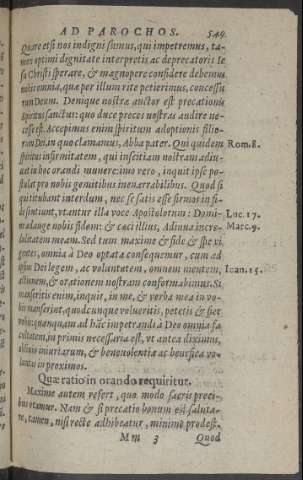 AD PAROCHOS. 549.
Quare etsi nos indigni simus, qui impetremus, ta-
men optimi dignitate interpretis ac deprecatoris Ie
su Christi sperare, & magnopere confidere debemus
nobis omnia, quæ per illum rite petierimus, concessu
rum Deum. Denique nostræ auctor est precationis
Spiritus sanctus: quo duce preces nostras audire ne-
cesse est. Accepimus enim spiritum adoptionis filio-
rum Dei, in quo clamamus, Abba pater. Qui quidem Rom. 8.
spiritus infirmitatem, qui inscitiam nostram adiu-
uat in hoc orandi munere: imo vero, inquit ipse po-
stulat pro nobis gemitibus inenarrabilibus. Quod si
qui titubant interdum, nec se satis esse firmos in fi-
de sentiunt, vtantur illa voce Apostolorum: Domi- Luc. 17.
ne adauge nobis fidem: & cæci illius, Adiuua incre- Marc. 9.
dulitatem meam. Sed tum maxime & fide & spe vi
gentes, omnia à Deo optata consequemur, cum ad
ipsius Dei legem, ac voluntatem, omnem mentem, Ioan. 15.
actionem, & orationem nostram conformabimus. Si
manseritis enim, inquit, in me, & verba mea in vo-
bis manserint, quodcunque volueritis, petetis & fiet
vobis: quanquam ad hāc impetrandi à Deo omnia fa
cultatem, in primis necessaria est, vt antea diximus,
obliuio iniuriarum, & beneuolentia ac benefica vo-
luntas in proximos.
Quæ ratio in orando requiritur.
Maxime autem refert, quo modo sacris preci-
bus vtamur. Nam & si precatio bonum est saluta-
re, tamen, nisi recte adhibeatur, minimè prodest.
Mm 3 Quod